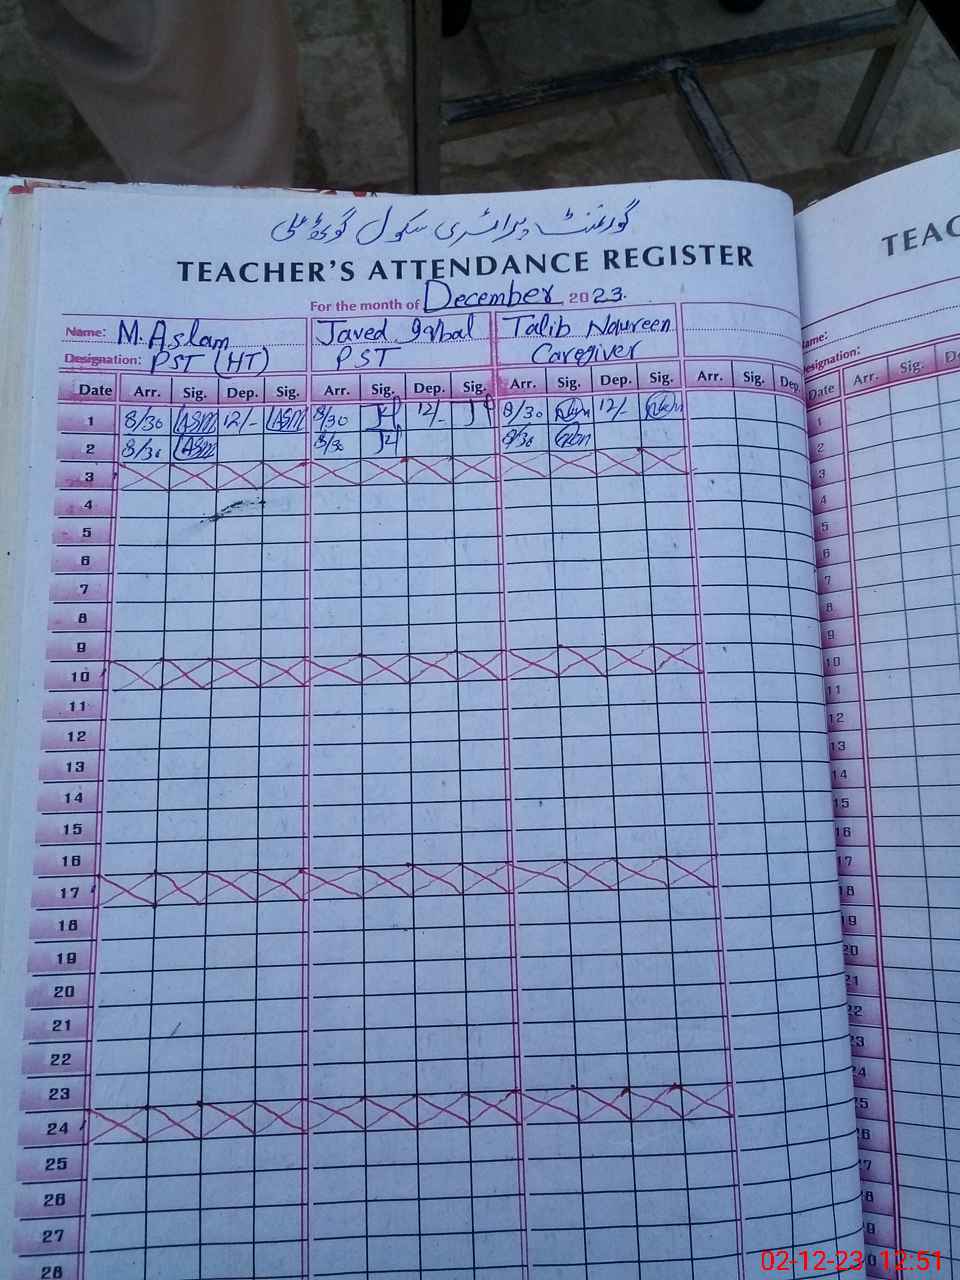 گورنمنٹ پرائمری سکول
TEACHER'S ATTENDANCE REGISTER
For the month of December 2023.
Name: M. Aslam Javed Iqbal Talib Noureen
Designation: PST (HT) PST Caregiver
Date Arr. Sig. Dep. Sig. Arr. Sig. Dep. Sig. Arr. Sig. Dep. Sig. Arr. Sig. Dep.
1 8/30 ASM 12/- ASM 8/30 12/- 8/30 12/-
2 8/30 ASM 8/30 8/30
3
4
5
6
7
8
9
10
11
12
13
14
15
16
17
18
19
20
21
22
23
24
25
26
27
28
TEAC
ame:
esignation:
Date Arr. Sig. De
1
2
3
4
5
6
7
8
9
10
11
12
13
14
15
16
17
18
19
20
21
22
23
24
25
26
27
28
29
30
02-12-23 12:51